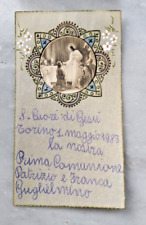 S. Cuore di Gesù
Torino 1 maggio 1983
la nostra
Prima Comunione
Patrizio e Franca
Guglielmino